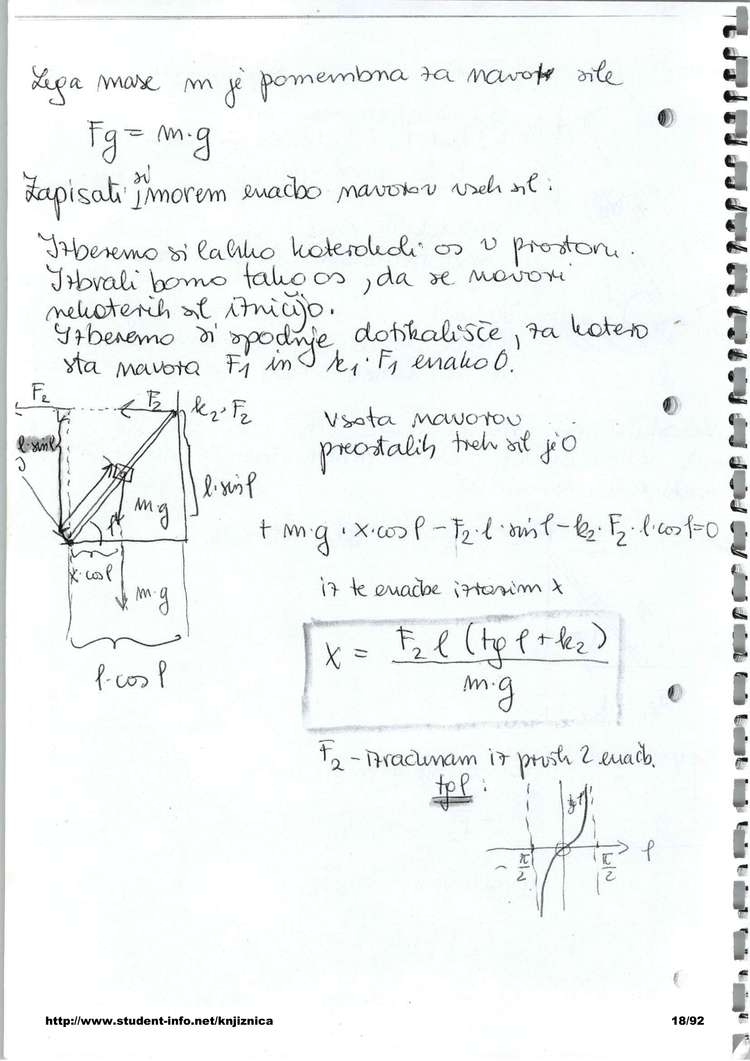 Lega mase m je pomembna za navor sile
Fg = m·g
Zapisati si moram enačbo navorov vseh sil:
Izberemo si lahko katerokoli os v prostoru.
Izbrali bomo tako os, da se navori
nekaterih sil izničijo.
Izberemo si spodnje dotikališče, za katero
sta navora F₁ in k₁·F₁ enako 0.
F₂
F₂
k₂·F₂
l·sinφ
l·sinφ
m·g
φ
x·cosφ
m·g
l·cosφ
Vsota navorov
preostalih treh sil je 0
+ m·g·x·cosφ − F₂·l·sinφ − k₂·F₂·l·cosφ=0
iz te enačbe izrazim x
x = F₂ l (tgφ + k₂) / m·g
F₂ - izračunam iz prvih 2 enačb.
tgφ :
tgφ
φ
−π/2
π/2
http://www.student-info.net/knjiznica
18/92